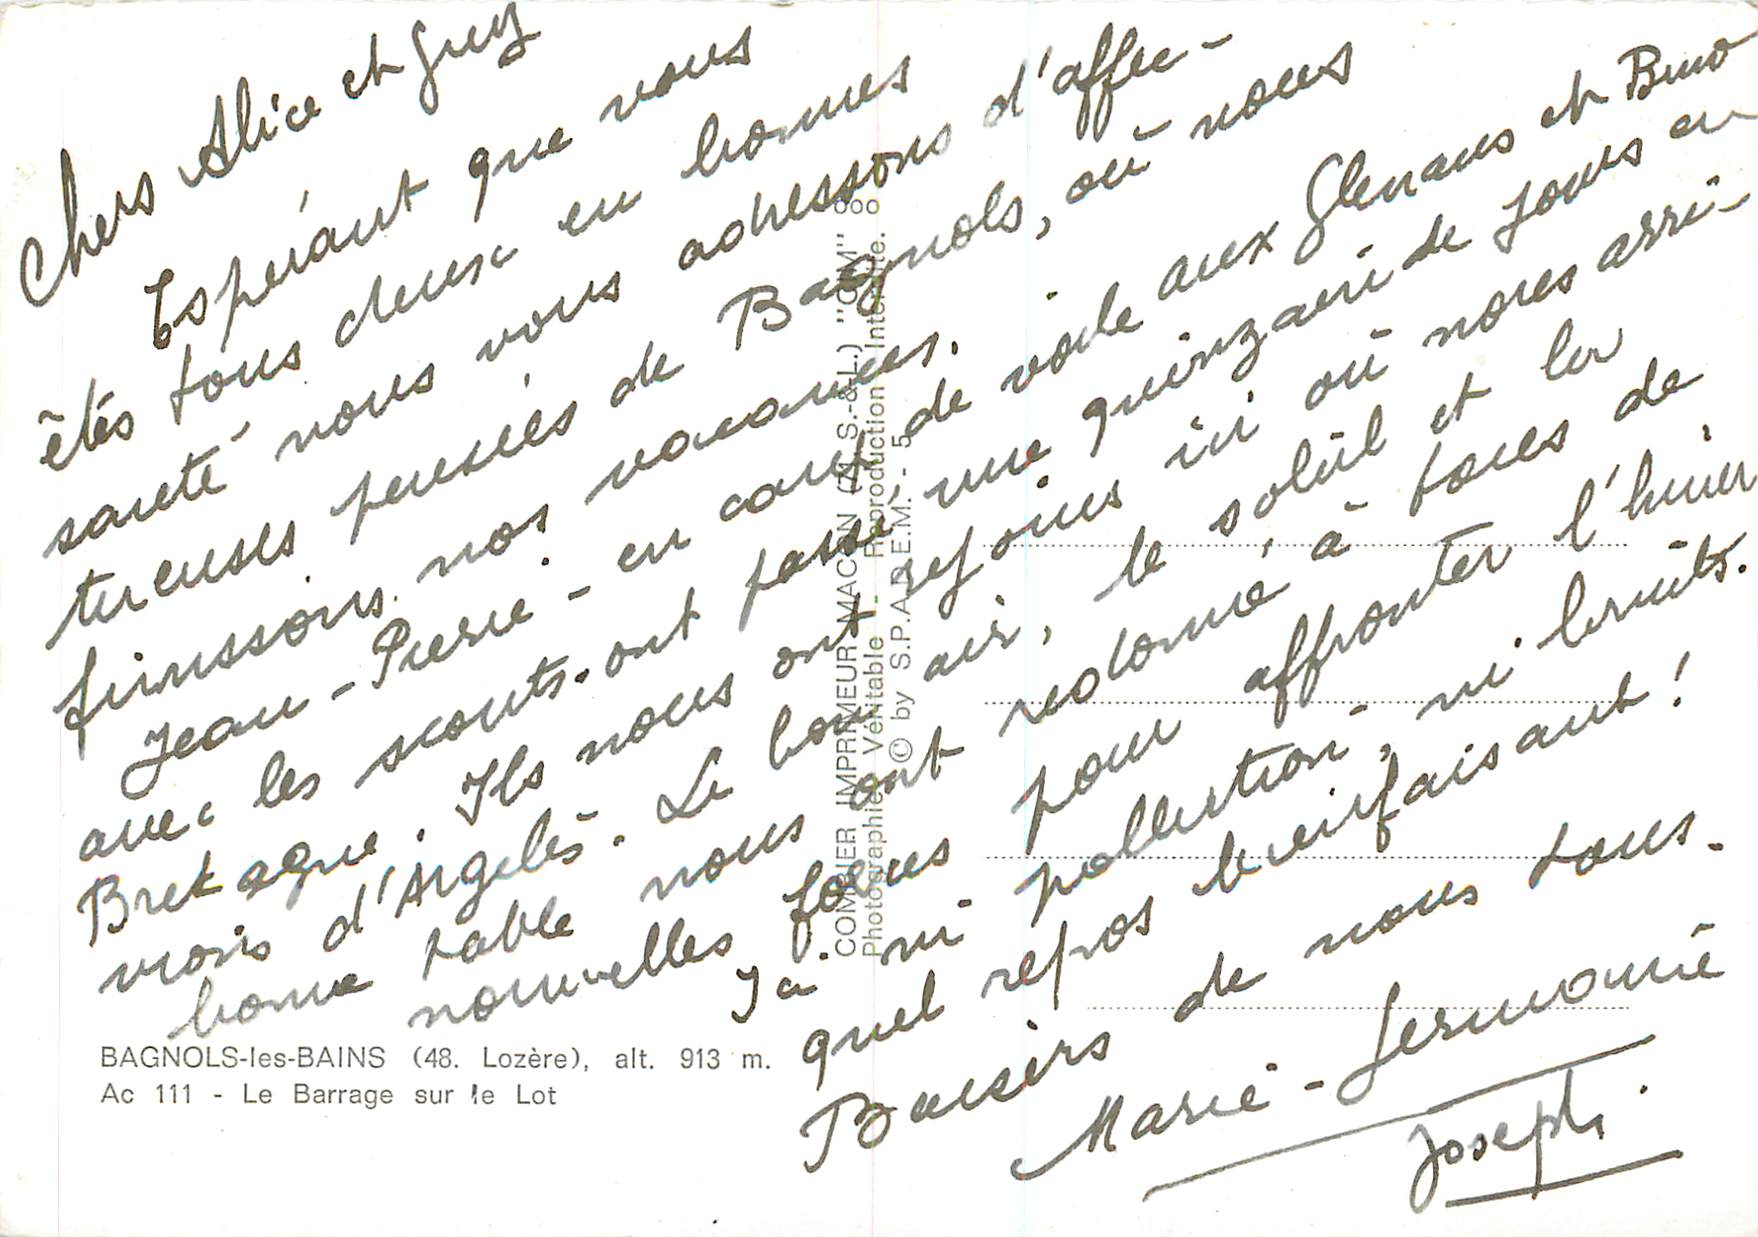 Chers Alice et Guy
Espérant que vous
êtes tous deux en bonnes
santé nous vous adressons d'affec-
tueuses pensées de Bagnols, où nous
finissons nos vacances.
Jean-Pierre - en camp de voile aux Glenans et Bruno
avec les scouts - ont passé, une quinzaine de jours en
Bretagne. Ils nous ont rejoins ici où nous arri-
vions d'Argelès. Le bon air, le soleil et la
bonne table nous ont redonné, à tous de
nouvelles forces pour affronter l'hiver.
Ici ni pollution, ni bruits.
quel repos bienfaisant !
Baisers de nous tous.
Marie-Germaine
Joseph.
BAGNOLS-les-BAINS (48. Lozère), alt. 913 m.
Ac 111 - Le Barrage sur le Lot
COMBIER IMPRIMEUR MACON (M.S.-&-L.) "CIM"
Photographie Véritable - Reproduction Interdite.
© by S.P.A.D.E.M. - 5